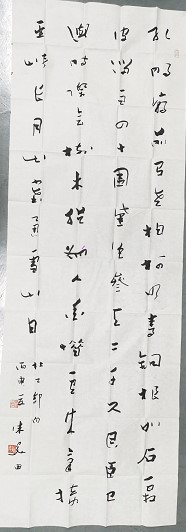 孔明廟前有老柏柯如青銅根如石霜
皮溜雨四十圍黛色參天二千尺君臣已
與時際會樹木猶為人愛惜雲來氣接
巫峽長月出寒通雪山白
杜工部句
丙申夏